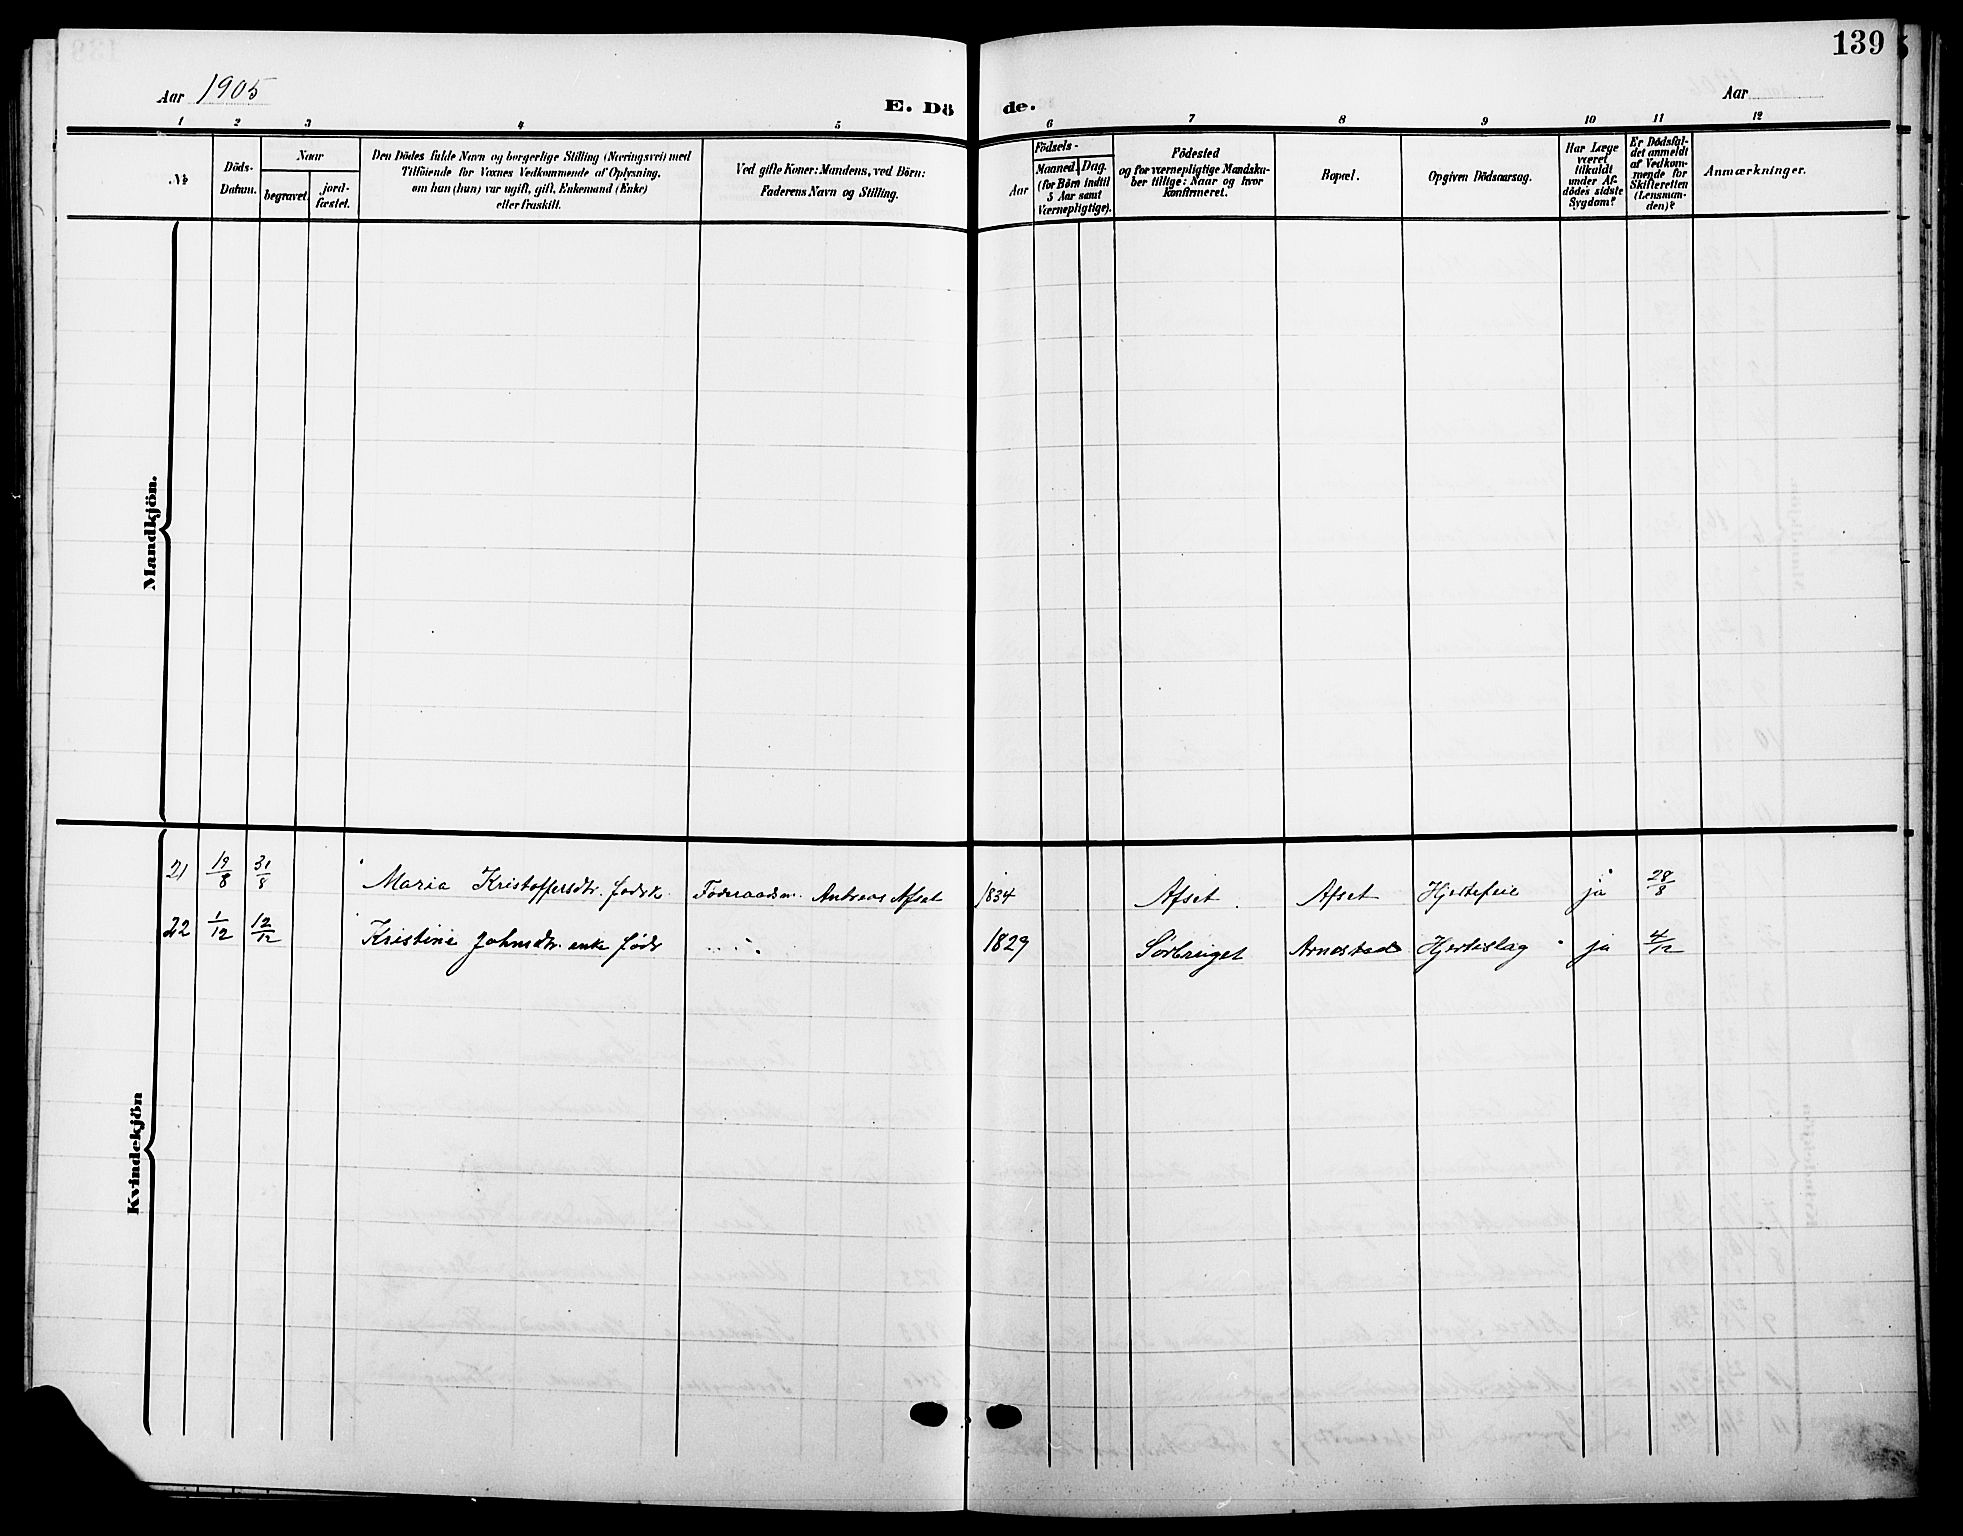 139
Aar 1905
E. Dö de.
Aar
1 2 3 4 5 6 7 8 9 10 11 12
No
Döds-Datum.
Naar
begravet.
jord-fæstet.
Den Dödes fulde Navn og borgerlige Stilling (Næringsvei) med
Tilföiende for Voxnes Vedkommende af Oplysning,
om han (hun) var ugift, gift, Enkemand (Enke)
eller fraskilt.
Ved gifte Koner: Mandens, ved Börn:
Faderens Navn og Stilling.
Födsels-
Aar
Maaned. Dag.
(for Börn indtil
5 Aar samt
Værnepligtige).
Födested
og for værnepligtige Mandska-
ber tillige: Naar og hvor
konfirmeret.
Bopæl.
Opgiven Dödsaarsag.
Har Læge
været
tilkaldt
under Af-
dödes sidste
Sygdom?
Er Dödsfal-
det anmeldt
af Vedkom-
mende for
Skifteretten
(Lensman-
den)?
Anmærkninger.
Mandkjön.
Kvindekjön
21 19/8 31/8 Maria Kristoffersdtr. føderk. Føderaadsm. Andreas Afset 1834 Afset Afset Hjertefeil ja 28/8
22 1/12 12/12 Kristine Johnsdtr. enke føder 1829 Arnestad Hjerteslag ja 4/12